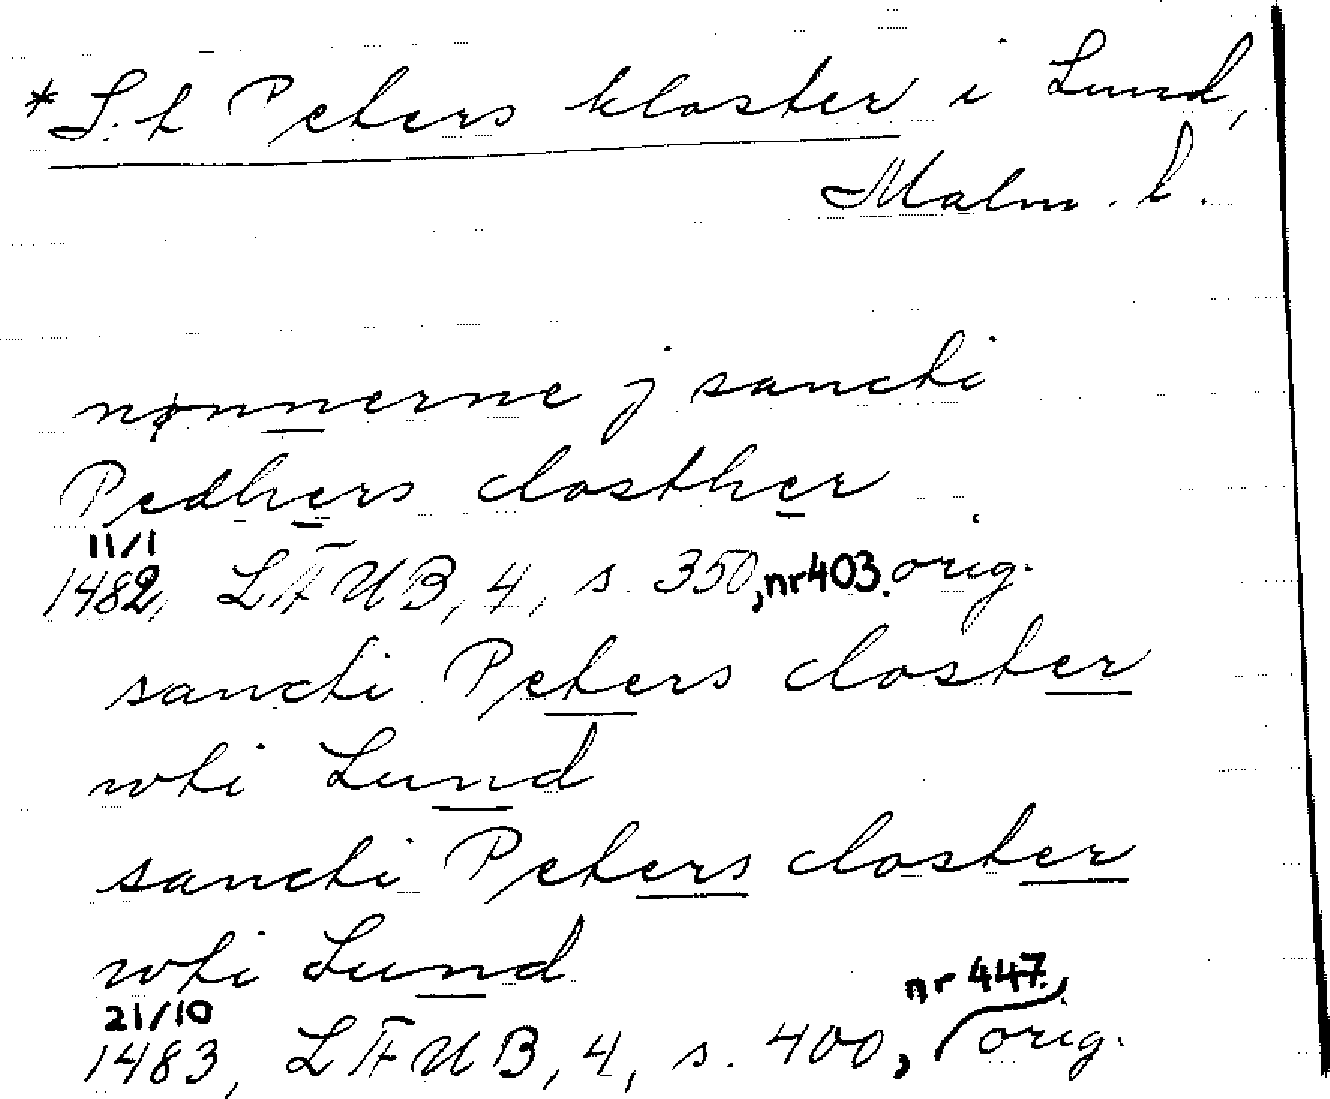 *S:t Peters kloster i Lund,
Malm. l.
nønnerne j sancti
Pedhers closther
11/1
1482, LÄUB, 4, s. 350, nr 403. orig.
sancti Peters closter
wti Lund
sancti Peters closter
wti Lund
21/10 nr 447.
1483, LÄUB, 4, s. 400, orig.